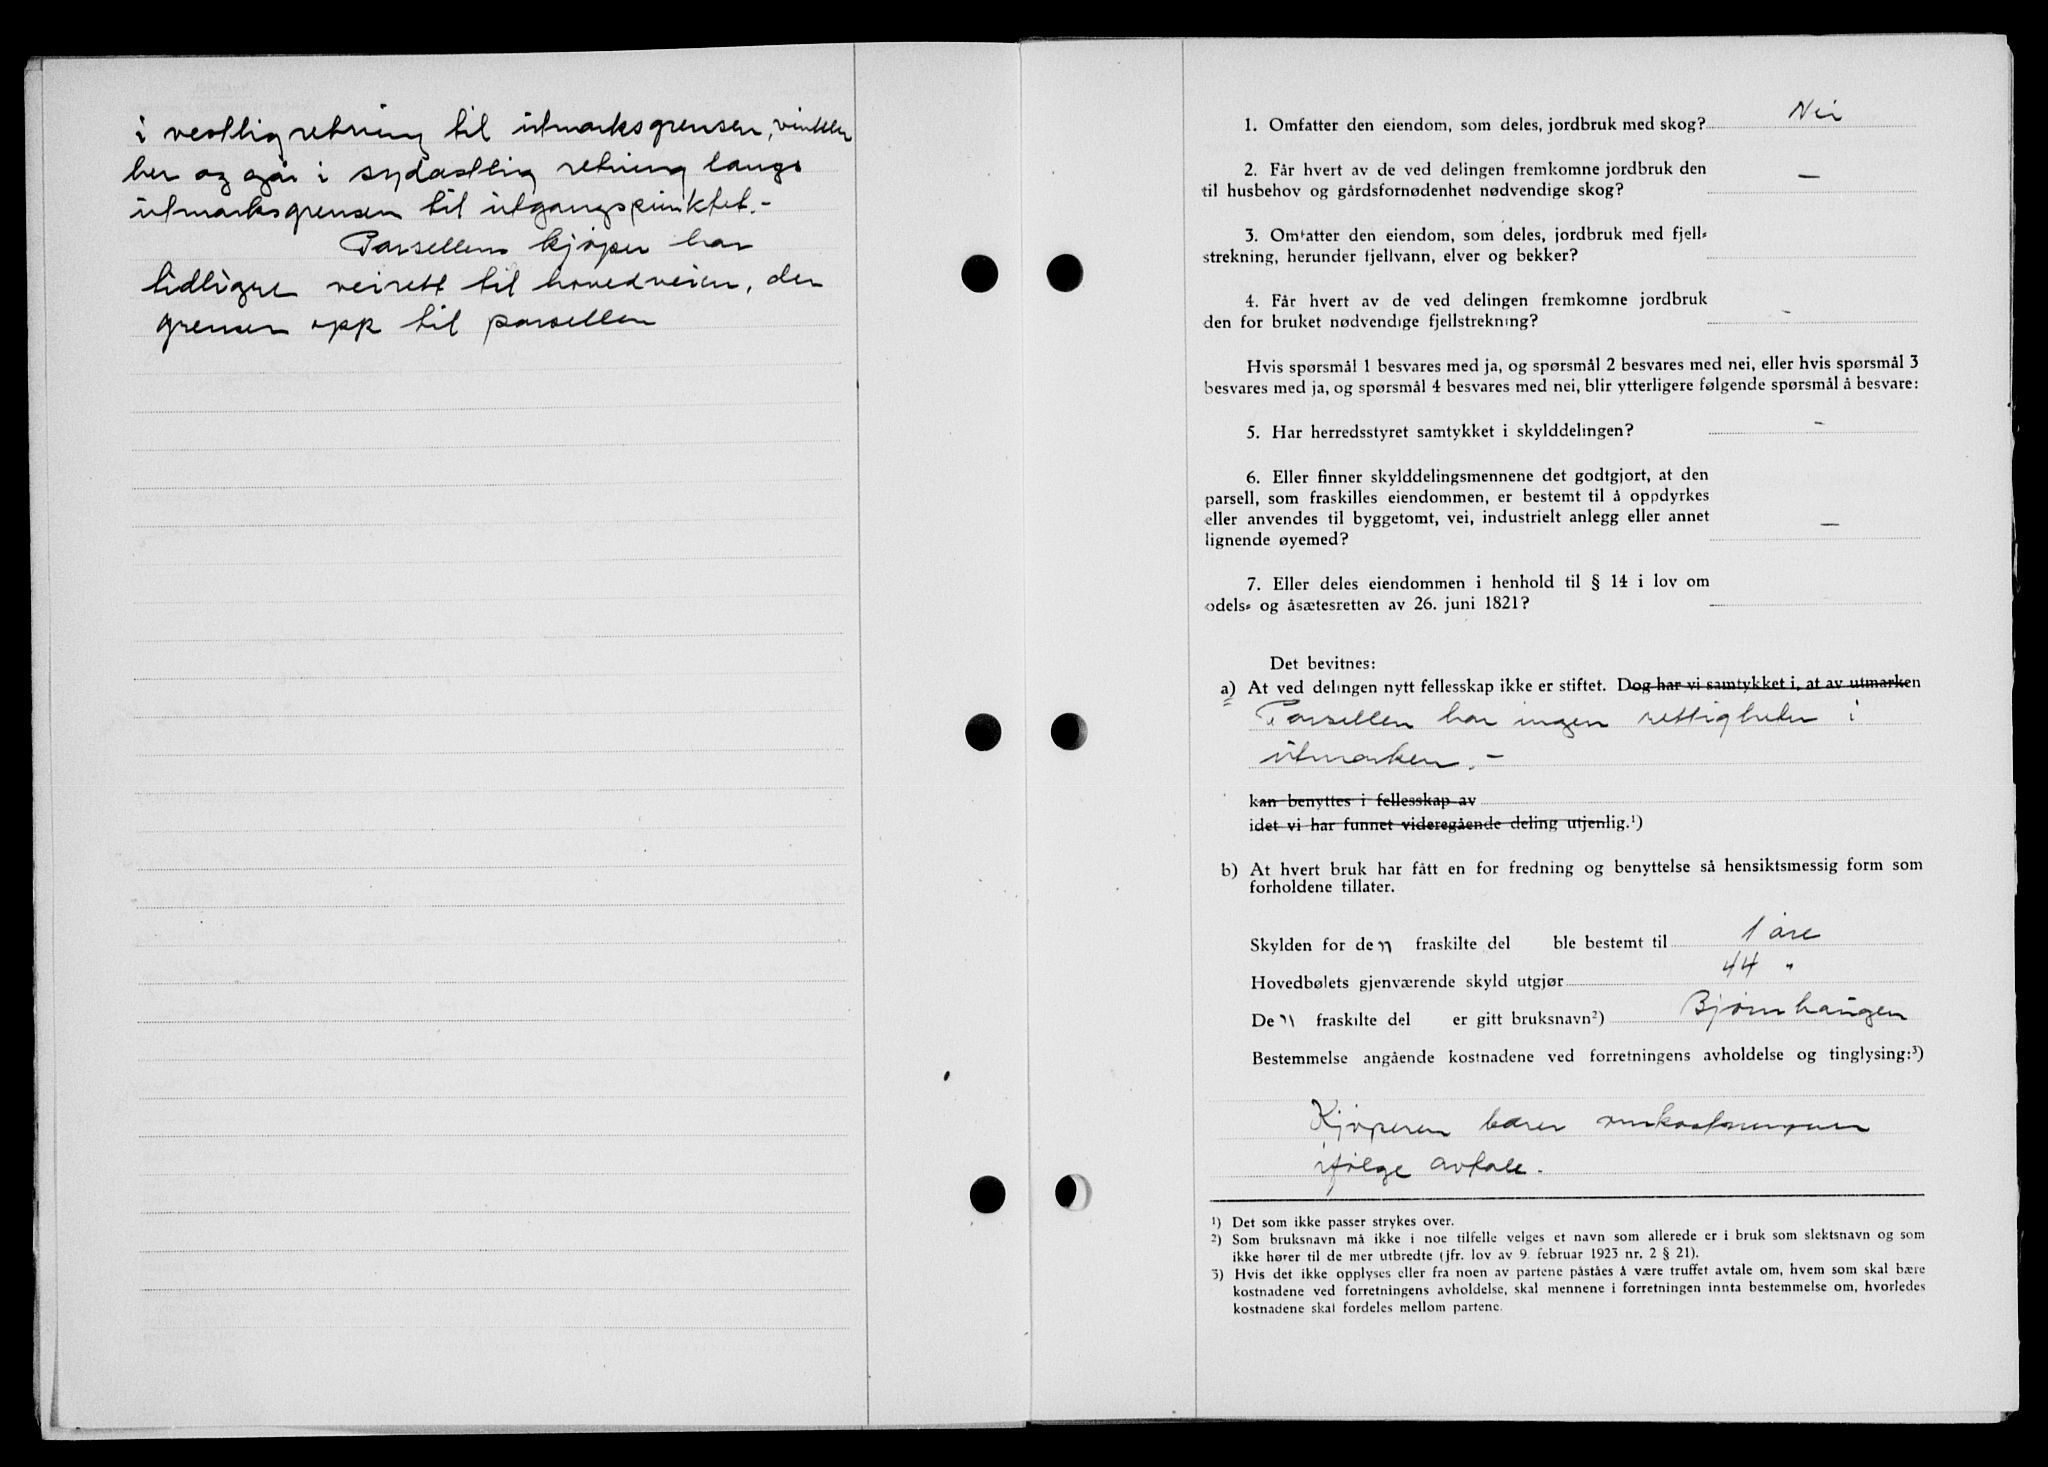 i vestlig retning til utmarksgrensen, vinkler
her og går i sydøstlig retning langs
utmarksgrensen til utgangspunktet.-
Parsellens kjøper har
tidligere veirett til hovedveien, den
grenser opp til parsellen
1. Omfatter den eiendom, som deles, jordbruk med skog? Nei
2. Får hvert av de ved delingen fremkomne jordbruk den
til husbehov og gårdsfornødenhet nødvendige skog? —
3. Omfatter den eiendom, som deles, jordbruk med fjell-
strekning, herunder fjellvann, elver og bekker?
4. Får hvert av de ved delingen fremkomne jordbruk
den for bruket nødvendige fjellstrekning? -
Hvis spørsmål 1 besvares med ja, og spørsmål 2 besvares med nei, eller hvis spørsmål 3
besvares med ja, og spørsmål 4 besvares med nei, blir ytterligere følgende spørsmål å besvare:
5. Har herredsstyret samtykket i skylddelingen? -
6. Eller finner skylddelingsmennene det godtgjort, at den
parsell, som fraskilles eiendommen, er bestemt til å oppdyrkes
eller anvendes til byggetomt, vei, industrielt anlegg eller annet
lignende øyemed? —
7. Eller deles eiendommen i henhold til § 14 i lov om
odels- og åsætesretten av 26. juni 1821?
Det bevitnes:
a) At ved delingen nytt fellesskap ikke er stiftet. Dog har vi samtykket i, at av utmarken
Parsellen har ingen rettigheter i
utmarken.-
kan benyttes i fellesskap av
idet vi har funnet videregående deling utjenlig.¹)
b) At hvert bruk har fått en for fredning og benyttelse så hensiktsmessig form som
forholdene tillater.
Skylden for den fraskilte del ble bestemt til 1 øre
Hovedbølets gjenværende skyld utgjør 44 "
Den fraskilte del er gitt bruksnavn²) Bjørnhaugen
Bestemmelse angående kostnadene ved forretningens avholdelse og tinglysing:³)
Kjøperen bærer omkostningene
ifølge avtale.
¹) Det som ikke passer strykes over.
²) Som bruksnavn må ikke i noe tilfelle velges et navn som allerede er i bruk som slektsnavn og som
ikke hører til de mer utbredte (jfr. lov av 9. februar 1923 nr. 2 § 21).
³) Hvis det ikke opplyses eller fra noen av partene påståes å være truffet avtale om, hvem som skal bære
kostnadene ved forretningens avholdelse, skal mennene i forretningen innta bestemmelse om, hvorledes
kostnadene skal fordeles mellom partene.